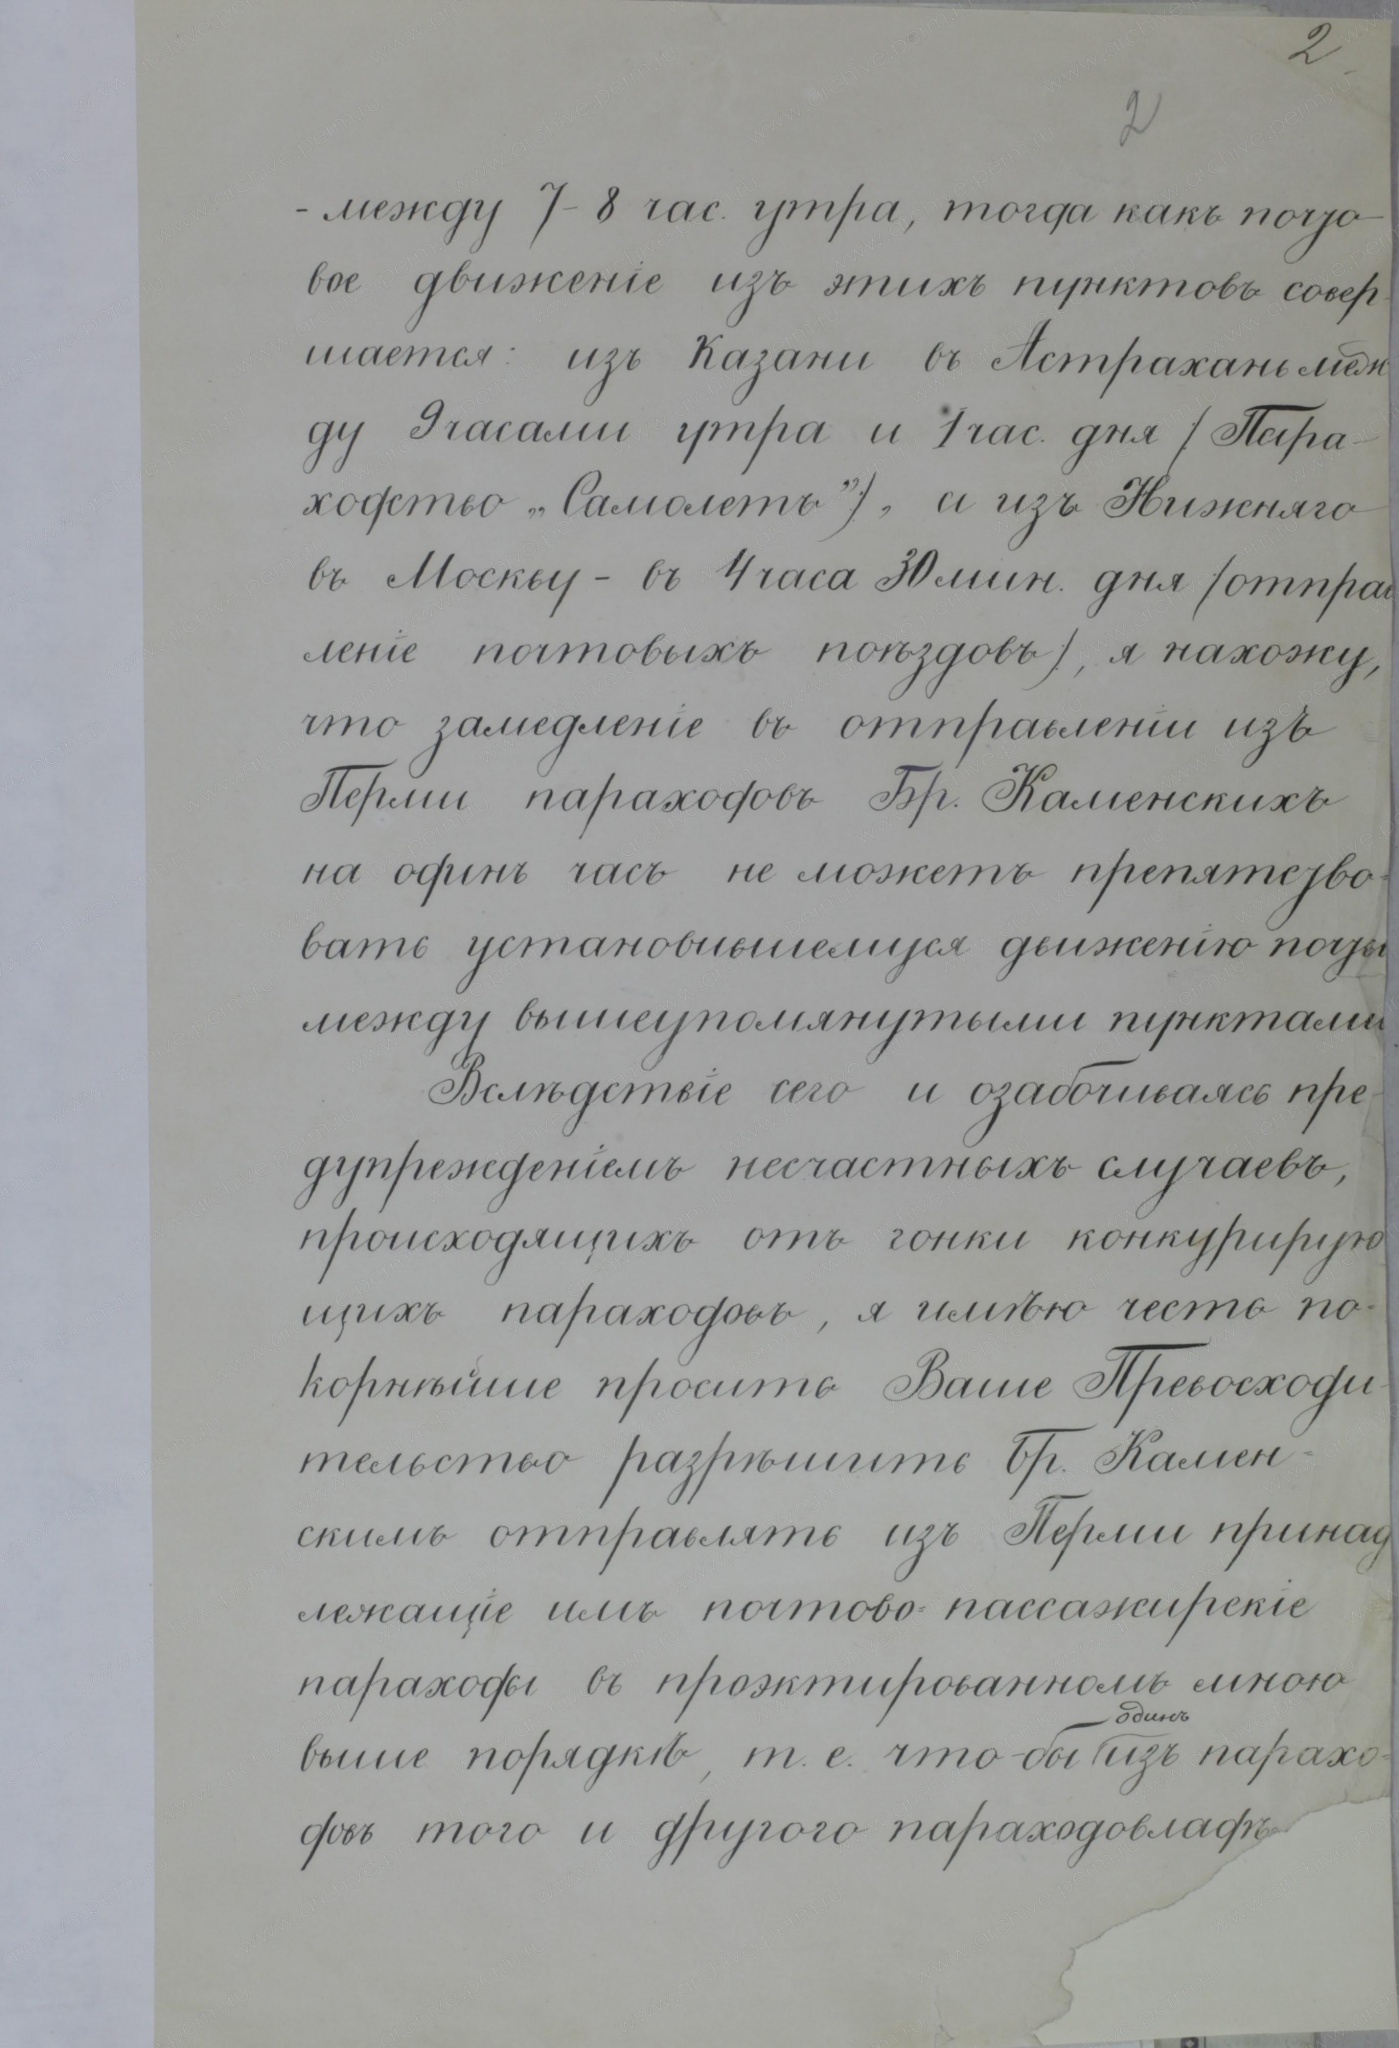 2
2
- между 7-8 час. утра, тогда какъ почто-
вое движеніе изъ этихъ пунктовъ совер-
шается: изъ Казани въ Астрахань меж
ду 9 часами утра и 1 час. дня (Пара-
ходство „Самолетъ”), а изъ Нижняго
въ Москву - въ 4 часа 30 мин. дня (отправ
леніе почтовыхъ поѣздовъ), я нахожу,
что замедленіе въ отправленіи изъ
Перми параходовъ Бр. Каменскихъ
на одинъ часъ не можетъ препятство-
вать установившемуся движенію почты
между вышеупомянутыми пунктами
Вслѣдствіе сего и озабочиваясь пре-
дупрежденіемъ несчастныхъ случаевъ,
происходящихъ отъ гонки конкурирую
щихъ параходовъ, я имѣю честь по-
корнѣйше просить Ваше Превосходи-
тельство разрѣшить Бр. Камен-
скимъ отправлять изъ Перми принад
лежащіе имъ почтово-пассажирскіе
параходы въ проэктированномъ мною
одинъ
выше порядкѣ, т. е. что-бы изъ парахо-
довъ того и другого параходовладѣ